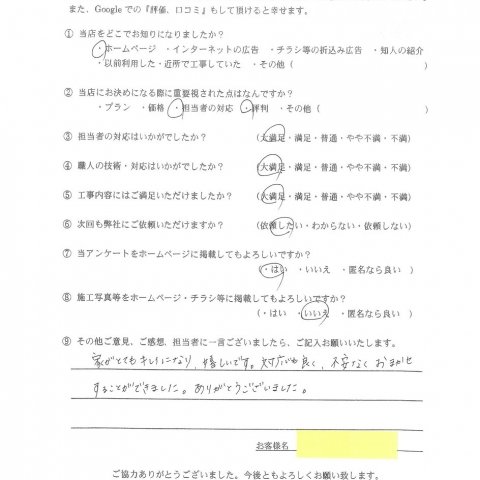 また、Googleでの『評価、口コミ』もして頂けると幸せます。
① 当店をどこでお知りになりましたか？
・ホームページ ・インターネットの広告 ・チラシ等の折込み広告 ・知人の紹介
・以前利用した・近所で工事していた ・その他（ ）
② 当店にお決めになる際に重要視された点はなんですか？
・プラン ・価格 ・担当者の対応 ・評判 ・その他（ ）
③ 担当者の対応はいかがでしたか？ （大満足・満足・普通・やや不満・不満）
④ 職人の技術・対応はいかがでしたか？ （大満足・満足・普通・やや不満・不満）
⑤ 工事内容にはご満足いただけましたか？ （大満足・満足・普通・やや不満・不満）
⑥ 次回も弊社にご依頼いただけますか？ （依頼したい・わからない・依頼しない）
⑦ 当アンケートをホームページに掲載してもよろしいですか？
（・はい ・いいえ ・匿名なら良い ）
⑧ 施工写真等をホームページ・チラシ等に掲載してもよろしいですか？
（・はい ・いいえ ・匿名なら良い ）
⑨ その他ご意見、ご感想、担当者に一言ございましたら、ご記入お願いいたします。
家がとてもキレイになり、嬉しいです。対応も良く、不安なくおまかせ
することができました。ありがとうございました。
お客様名
ご協力ありがとうございました。今後ともよろしくお願い致します。